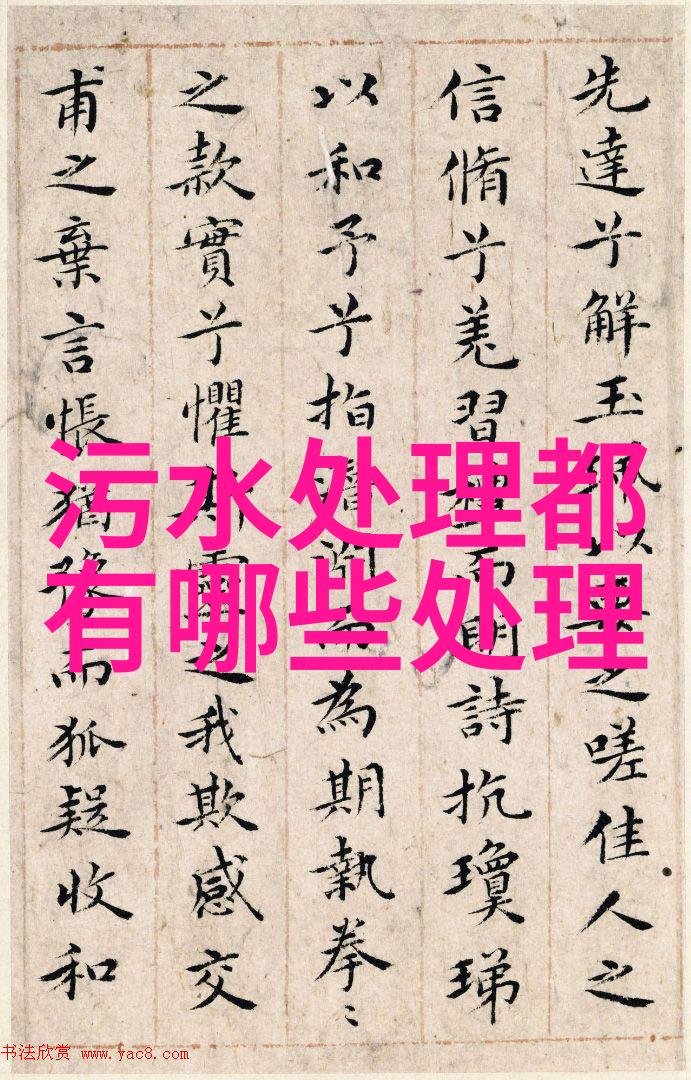 先達兮解玉之嗟佳人之
信脩兮羌習而明詩抗瓊珶
以和予兮指而為期執拳〻
之款實兮懼之我欺感交
甫之棄言悵猶豫而狐疑收和
污水处理都
有哪些处理
书法欣赏 www.yac8.com